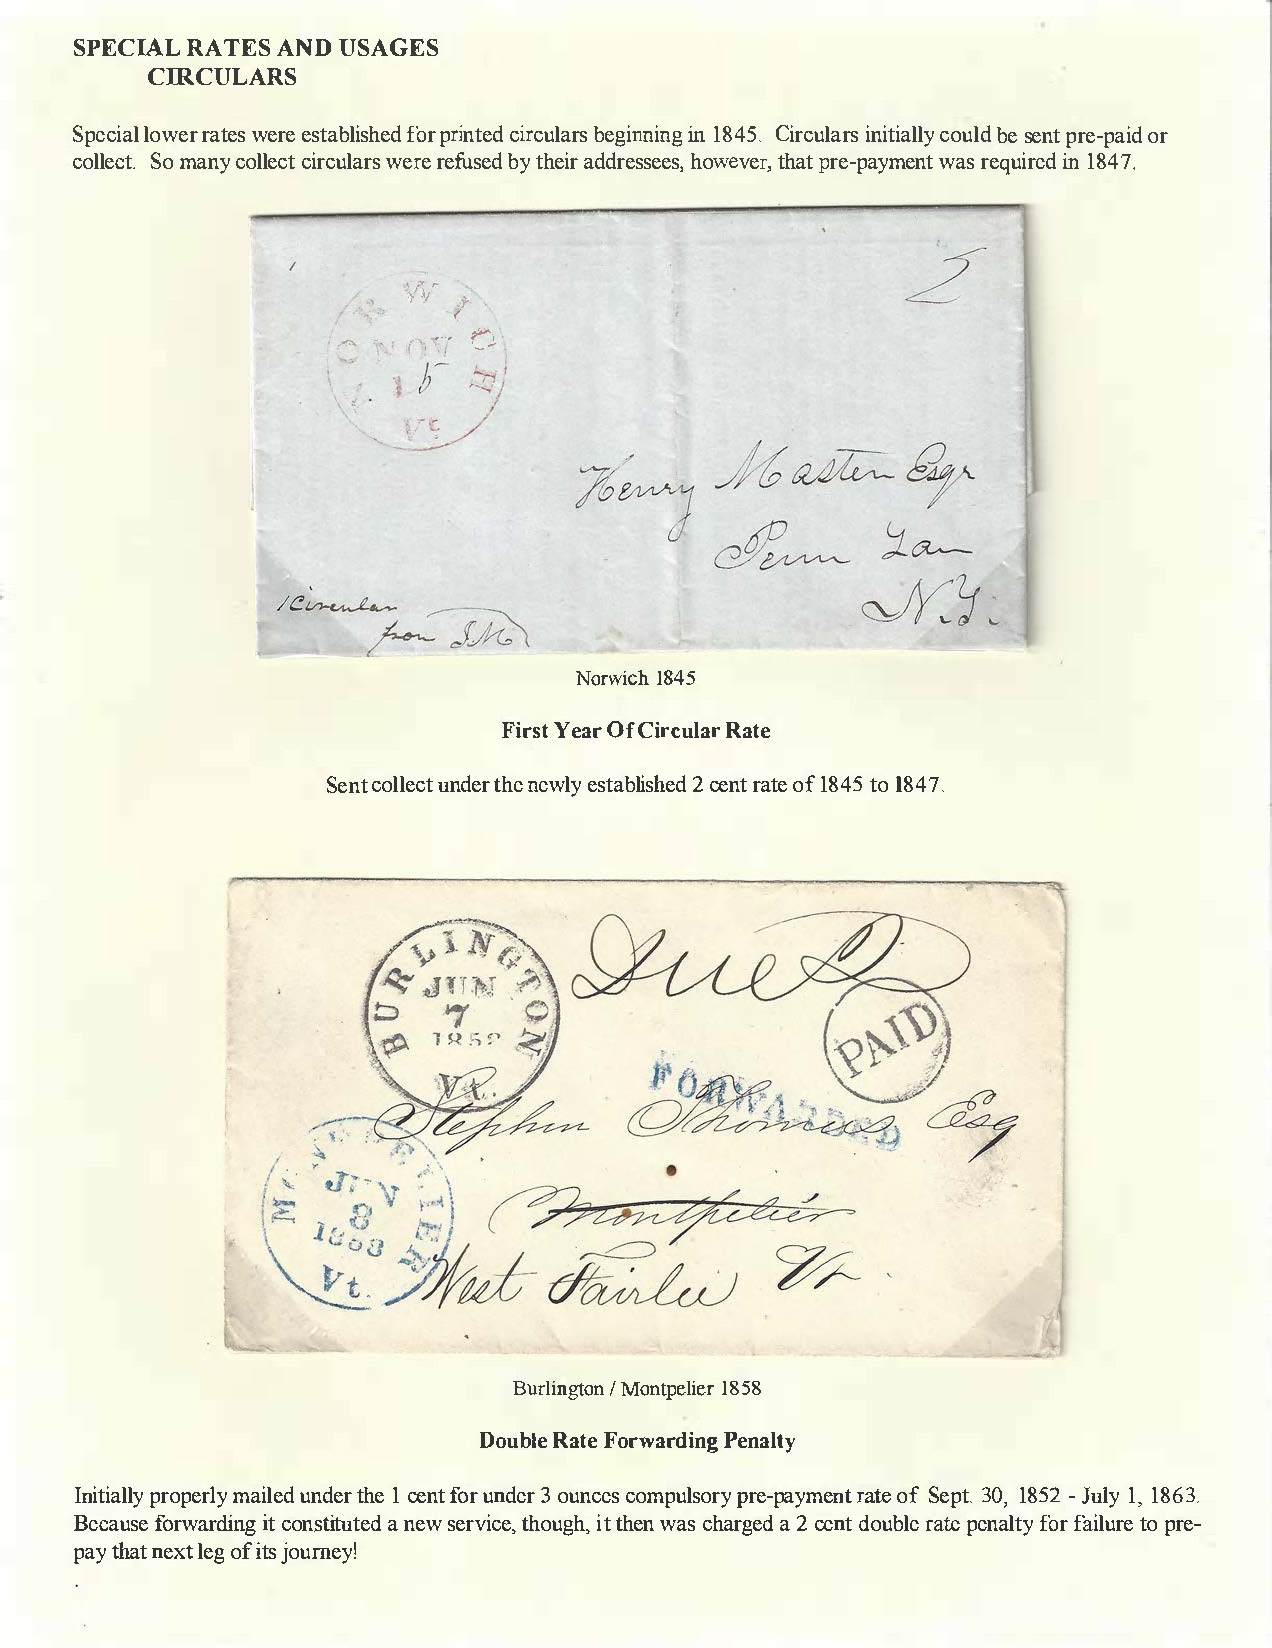 SPECIAL RATES AND USAGES
CIRCULARS
Special lower rates were established for printed circulars beginning in 1845. Circulars initially could be sent pre-paid or
collect. So many collect circulars were refused by their addressees, however, that pre-payment was required in 1847.
2
NORWICH
NOV
15
Vt
Henry Masten Esqr
Penn Yan
N.Y.
Circular
from JM
Norwich 1845
First Year Of Circular Rate
Sent collect under the newly established 2 cent rate of 1845 to 1847.
BURLINGTON
JUN
7
1858
Vt.
Due 2
PAID
FORWARDED
Stephen Thomas Esq
MONTPELIER
JUN
8
1858
Vt.
Montpelier
West Fairlee Vt.
Burlington / Montpelier 1858
Double Rate Forwarding Penalty
Initially properly mailed under the 1 cent for under 3 ounces compulsory pre-payment rate of Sept. 30, 1852 - July 1, 1863.
Because forwarding it constituted a new service, though, it then was charged a 2 cent double rate penalty for failure to pre-
pay that next leg of its journey!